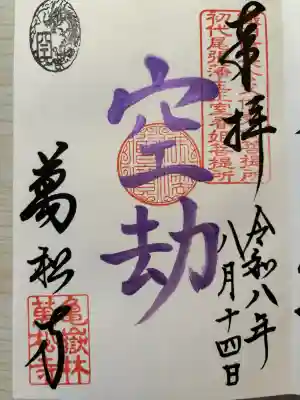 奉拝
令和八年
八月十四日
初代尾張藩主正室春姫菩提所
空劫
萬松寺
亀嶽林
萬松寺